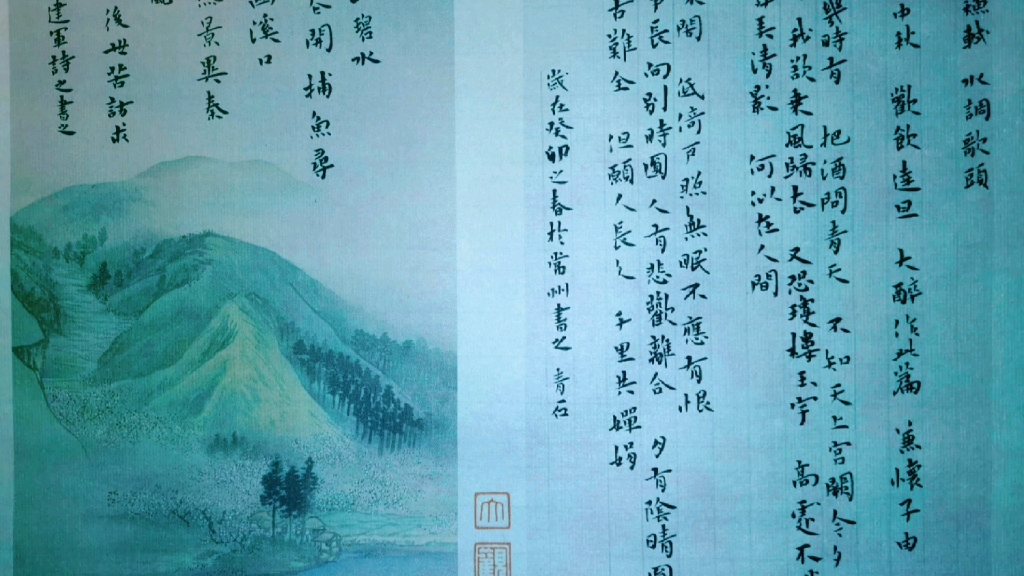 蘇軾 水調歌頭
中秋 歡飲達旦 大醉作此篇 兼懷子由
幾時有 把酒問青天 不知天上宮闕今夕
我欲乘風歸去 又恐瓊樓玉宇 高處不
弄清影 何以在人間
閣 低倚戶照無眠不應有恨
事長向別時圓 人有悲歡離合 月有陰晴圓
古難全 但願人長久 千里共嬋娟
歲在癸卯之春於常州書之 青石
大觀
碧水
開捕魚尋
溪口
景異秦
後世皆訪求
建軍詩之書之